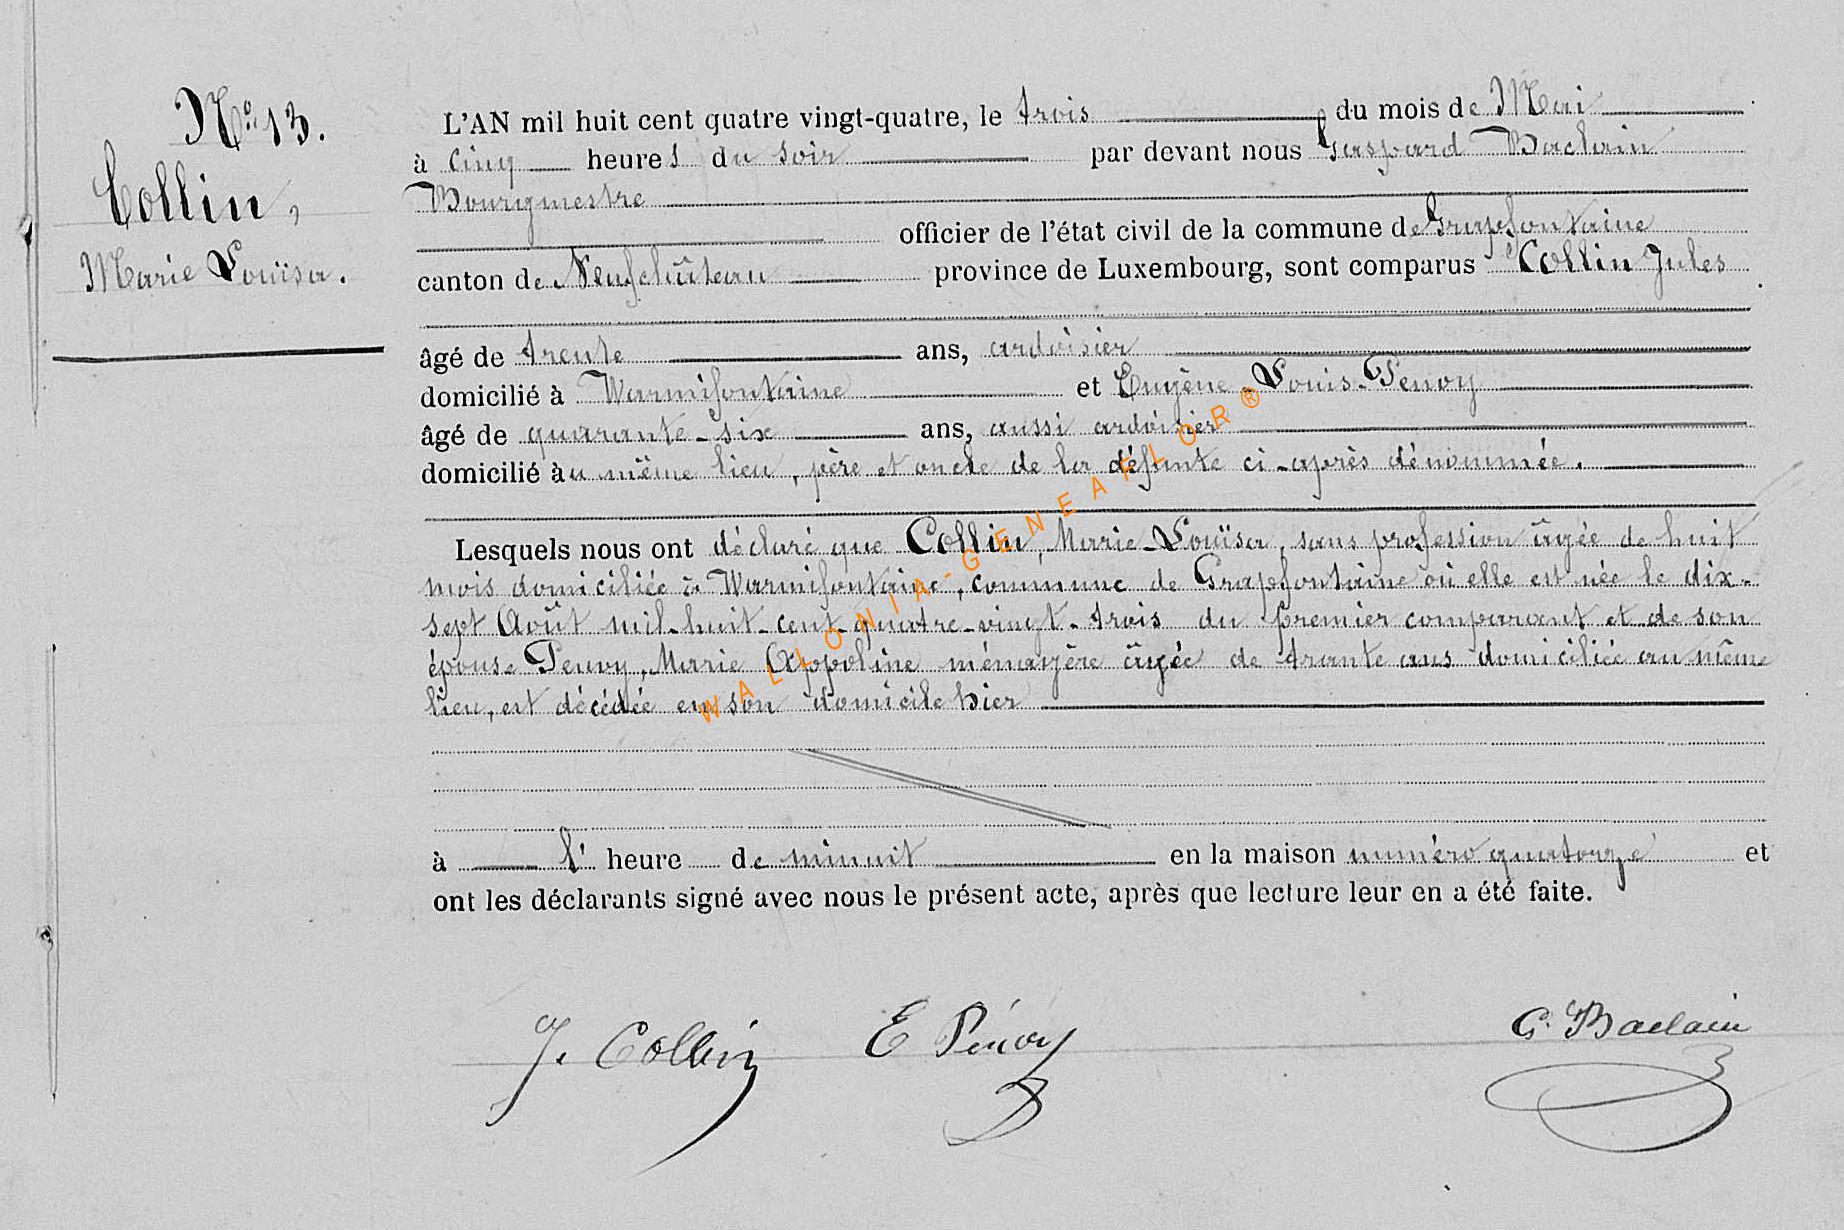 N° 13.
Collin,
Marie Louïsa.
L'AN mil huit cent quatre vingt-quatre, le trois du mois de Mai
à cinq heures du soir par devant nous Gaspard Baclain
Bourgmestre
officier de l'état civil de la commune de Grapfontaine
canton de Neufchâteau province de Luxembourg, sont comparus Collin Jules
âgé de trente ans, ardoisier
domicilié à Warmifontaine et Eugène-Louis-Penoy
âgé de quarante-six ans, aussi ardoisier
domicilié au même lieu, père et oncle de la défunte ci-après dénommée.
Lesquels nous ont déclaré que Collin, Marie-Louïsa, sans profession âgée de huit
mois domiciliée à Warmifontaine, commune de Grapfontaine où elle est née le dix-
sept Août mil-huit-cent-quatre-vingt-trois du premier comparant et de son
épouse Penoy, Marie Appoline ménagère âgée de trante ans domiciliée au même
lieu, est décédée en son domicile hier
à l' heure de minuit en la maison numéro quatorze et
ont les déclarants signé avec nous le présent acte, après que lecture leur en a été faite.
J. Collin E Pénoy G. Baclain
WALLONIA-GENEAFLOR®